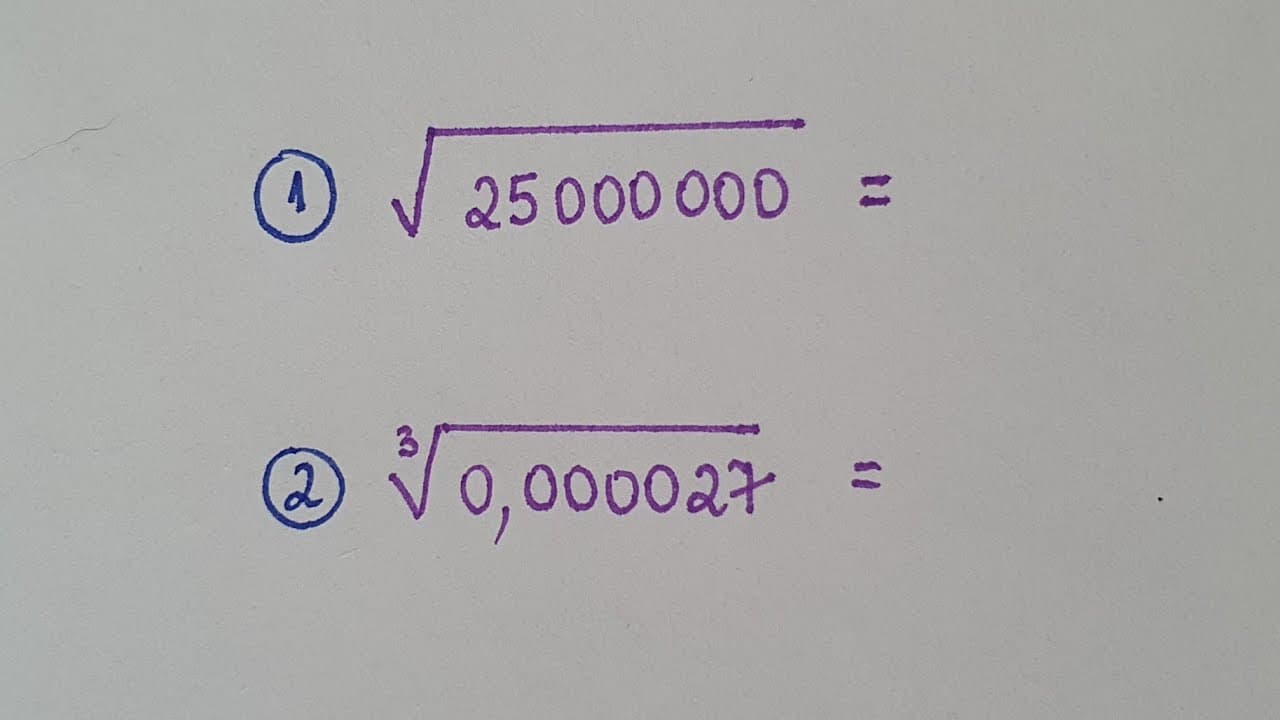 ① √25000000 =
② ∛0,000027 =